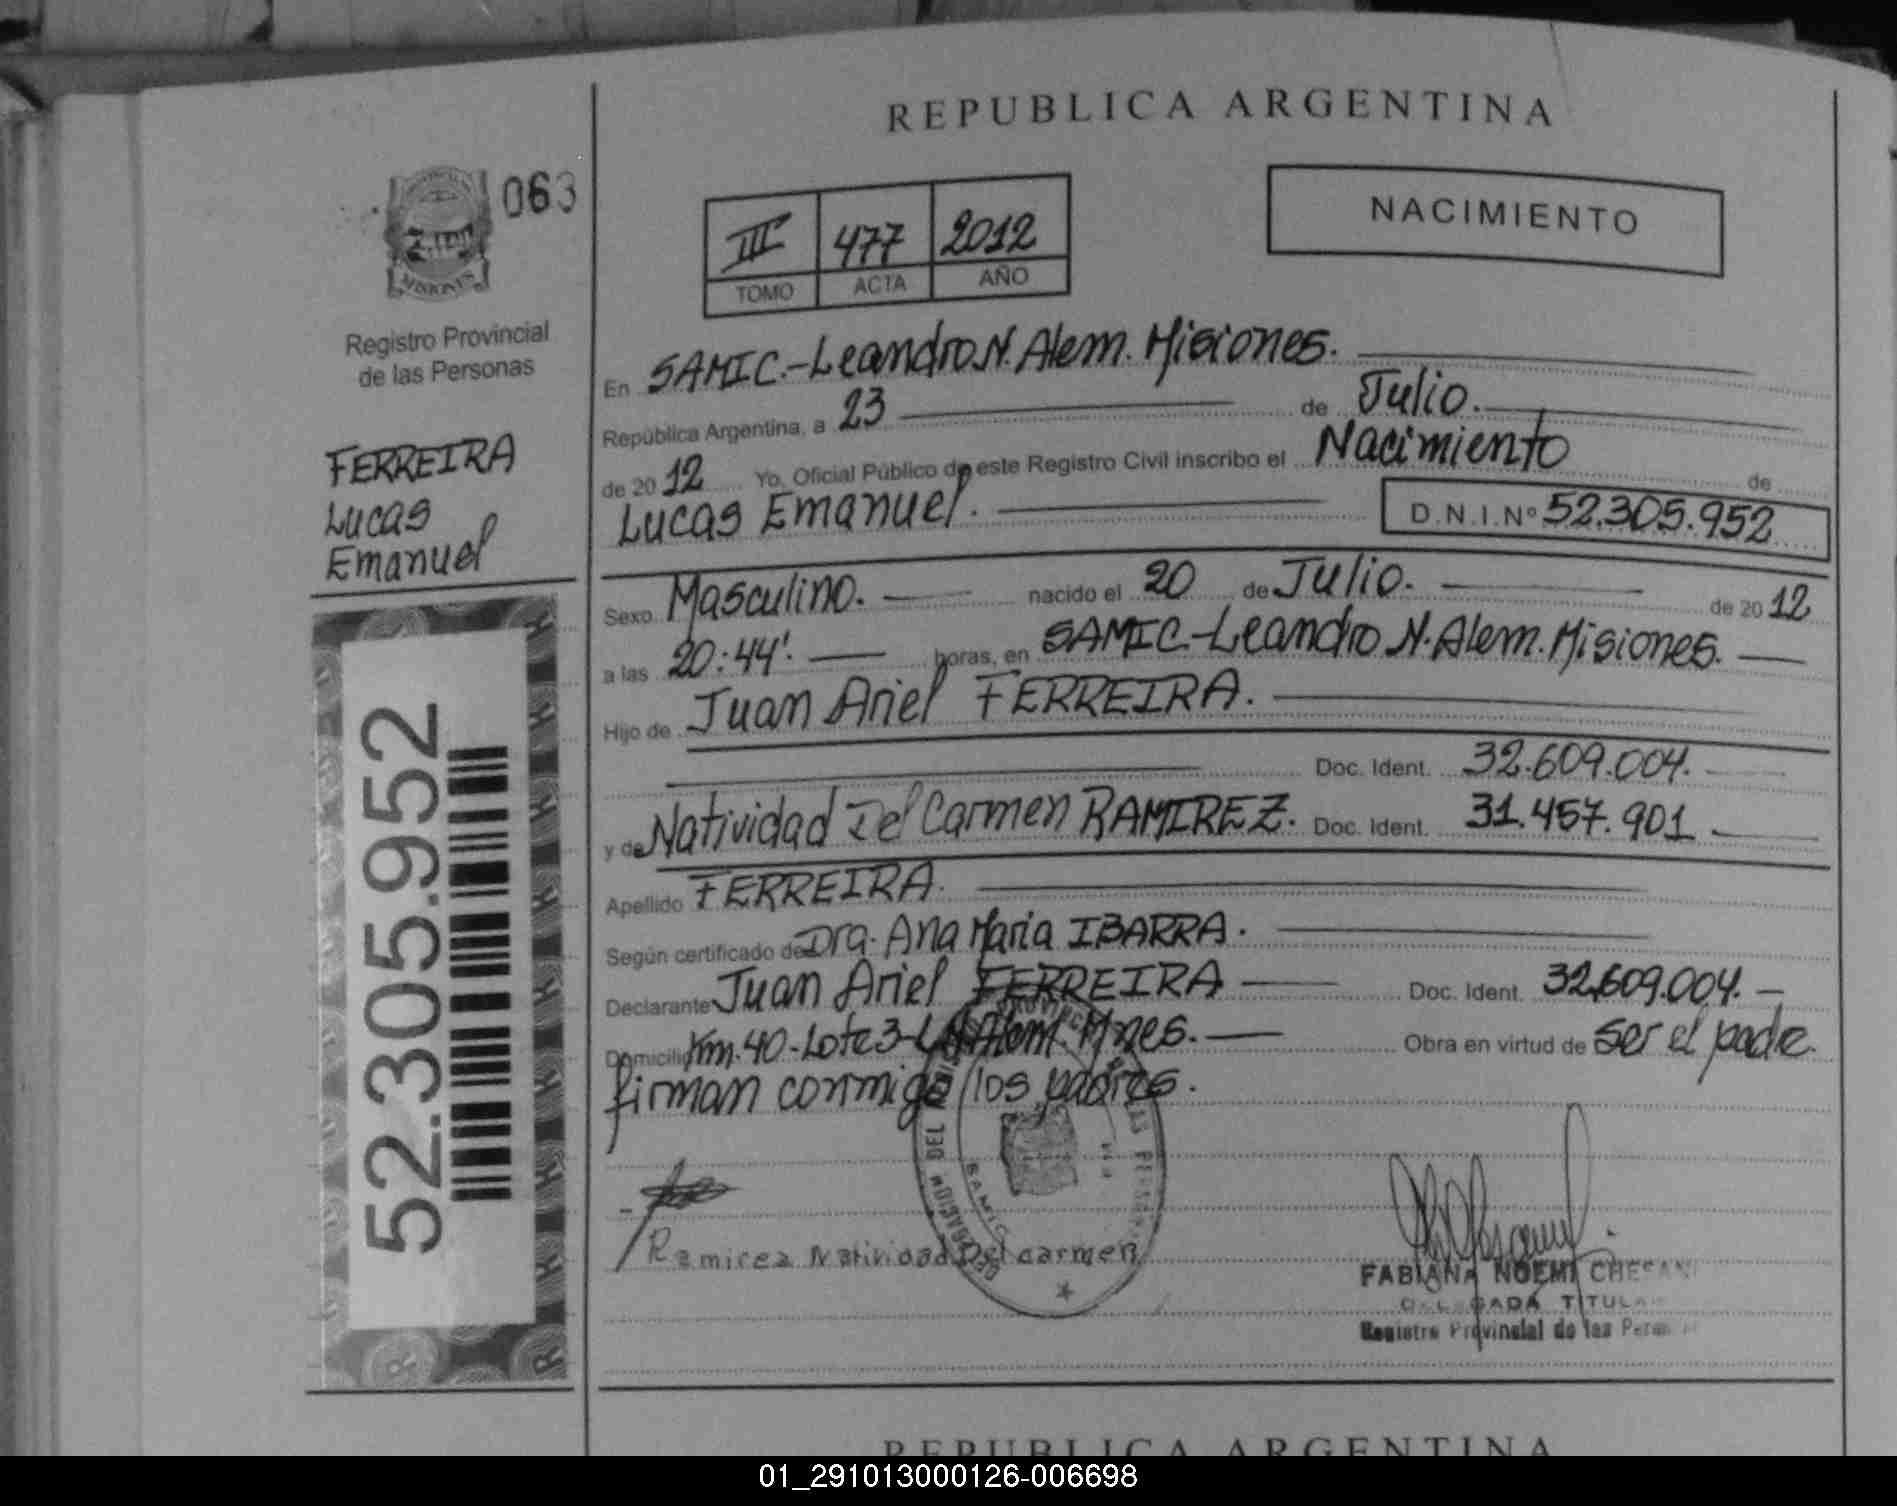 REPUBLICA ARGENTINA
063
MISIONES
Registro Provincial
de las Personas
FERREIRA
Lucas
Emanuel
52.305.952
III 477 2012
TOMO ACTA AÑO
NACIMIENTO
En SAMIC.-Leandro N. Alem. Misiones.
República Argentina, a 23 de Julio.
de 2012 Yo, Oficial Público de este Registro Civil inscribo el Nacimiento de
Lucas Emanuel. D.N.I.Nº 52.305.952
Sexo Masculino. nacido el 20 de Julio. de 2012
a las 20:44'. horas, en SAMIC-Leandro N. Alem. Misiones.
Hijo de Juan Ariel FERREIRA.
Doc. Ident. 32.609.004.
y de Natividad Del Carmen RAMIREZ. Doc. Ident. 31.457.901
Apellido FERREIRA.
Según certificado de Dra. Ana Maria IBARRA.
Declarante Juan Ariel FERREIRA Doc. Ident. 32.609.004.
Domicilio Km.40-Lote 3-L.N.Alem. Mnes. Obra en virtud de ser el padre.
firman conmigo los padres.
Ramirea Natividad Del carmen
SAMIC
FABIANA NOEMI
DELEGADA TITULAR
Registro Provincial de las
REPUBLICA ARGENTINA
01_291013000126-006698